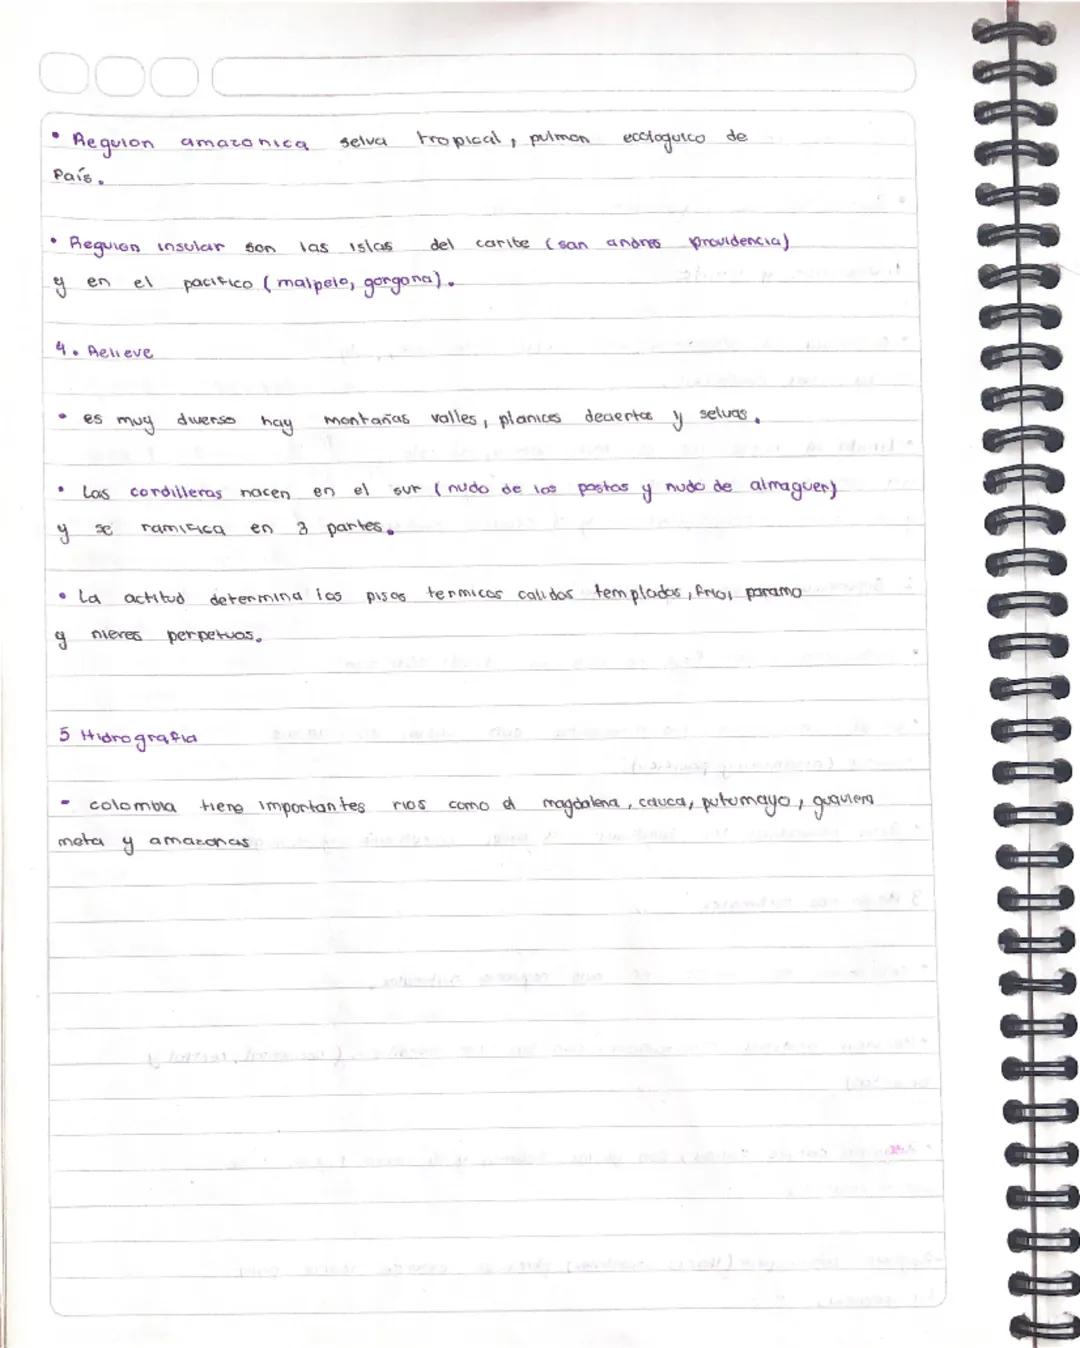 • Reguion amazonica selva tropical, pulmon ecologuico de
País.
• Reguion insular son las islas del caribe (san andres providencia)
y en el pacifico (malpelo, gorgona).
4. Relieve
• es muy diverso hay montañas valles, planices decertos y selvas.
• Las cordilleras nacen en el sur (nudo de los pastos y nudo de almaguer)
y se ramifica en 3 partes.
• La actitud determina los pisos termicos calidos templados, frio, paramo
y nieves perpetuas.
5 Hidrografia
- colombia tiene importantes rios como el magdalena, cauca, putumayo,
meta y amazonas